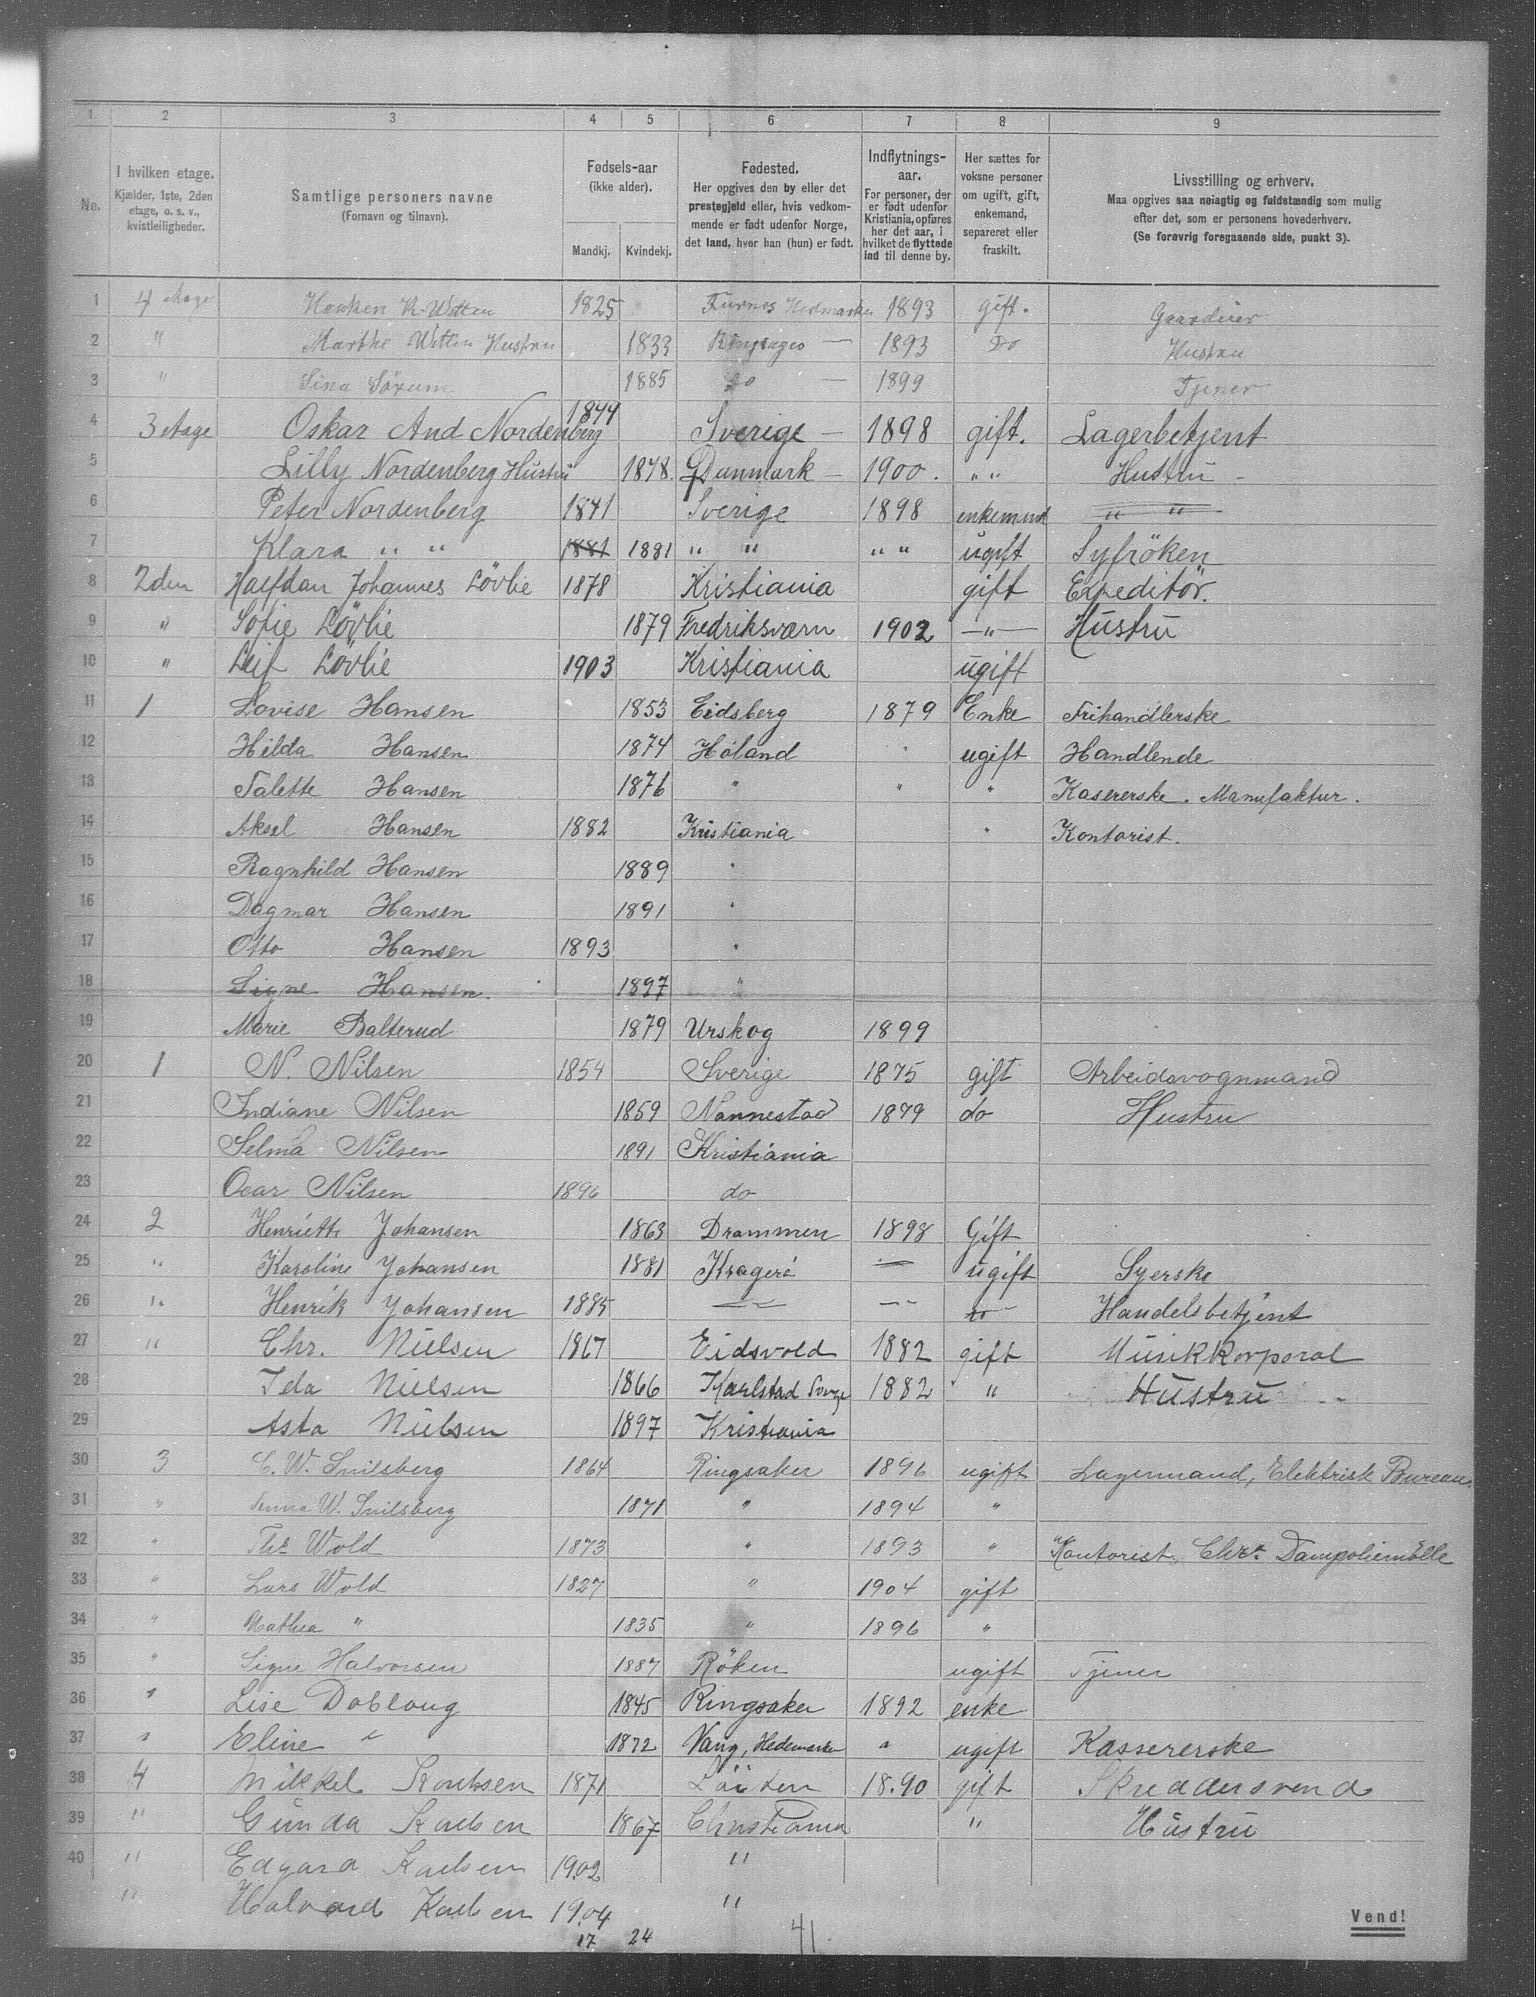 1 2 3 4 5 6 7 8 9
No.
I hvilken etage.
Kjælder, 1ste, 2den
etage, o. s. v.,
kvistleiligheder.
Samtlige personers navne
(Fornavn og tilnavn).
Fødsels-aar
(ikke alder).
Mandkj. Kvindekj.
Fødested.
Her opgives den by eller det
prestegjeld eller, hvis vedkom-
mende er født udenfor Norge,
det land, hvor han (hun) er født.
Indflytnings-
aar.
For personer, der
er født udenfor
Kristiania, opføres
her det aar, i
hvilket de flyttede
ind til denne by.
Her sættes for
voksne personer
om ugift, gift,
enkemand,
separeret eller
fraskilt.
Livsstilling og erhverv.
Maa opgives saa nøiagtig og fuldstændig som mulig
efter det, som er personens hovederhverv.
(Se forøvrig foregaaende side, punkt 3).
1 4 etage Haaken K. Wetten 1825 Furnes Hedmarken 1893 gift. Gaardeier
2 " Marthe Wetten Hustru 1833 Ringsager — 1893 Do Hustru
3 " Sina Sørum 1885 do — 1899 Tjener
4 3 etage Oskar And Nordenberg 1844 Sverige — 1898 gift. Lagerbetjent
5 Lilly Nordenberg Hustru 1878. Danmark — 1900. " " Hustru -
6 Peter Nordenberg 1841 Sverige 1898 enkemand " "
7 Klara " " 1881 1881 " " " " ugift Syfröken
8 2den Halfdan Johannes Lövlie 1878 Kristiania gift Expeditör.
9 " Sofie Lövlie 1879 Fredriksværn 1902 —"— Hustru
10 " Leif Lövlie 1903 Kristiania ugift
11 1 Lovise Hansen 1853 Eidsberg 1879 Enke Frihandlerske
12 Hilda Hansen 1874 Höland " ugift Handlende
13 Talette Hansen 1876 " " " Kasererske. Manufaktur.
14 Aksel Hansen 1882 Kristiania " Kontorist.
15 Ragnhild Hansen 1889 "
16 Dagmar Hansen 1891 "
17 Otto Hansen 1893 "
18 Signe Hansen. 1897 "
19 Marie Balterud 1879 Urskog 1899
20 1 N. Nilsen 1854 Sverige 1875 gift Arbeidsvognmand
21 Indiane Nilsen 1859 Nannestad 1879 do Hustru
22 Selma Nilsen 1891 Kristiania
23 Ocar Nilsen 1896 do
24 2 Henriette Johansen 1863 Drammen 1898 Gift
25 " Karoline Johansen 1881 Kragerö — ugift Syerske
26 " Henrik Johansen 1885 — — do Handelsbetjent
27 " Chr. Nielsen 1867 Eidsvold 1882 gift Musikkorporal
28 Ida Nielsen 1866 Karlstad Sverge 1882 " Hustru
29 Asta Nielsen 1897 Kristiania
30 3 C. W. Snilsberg 1864 Ringsaker 1896 ugift Lagermand, Elektrisk Bureau.
31 " W. Snilsberg 1871 " 1894 "
32 " Wold 1873 " 1893 " Kontorist, Chr.a Dampoliemölle
33 " Lars Wold 1827 " 1904 gift
34 " Mathea " 1835 " 1896 "
35 " Signe Halvorsen 1887 Röken ugift Tjener
36 " Lise Dobloug 1845 Ringsaker 1892 enke
37 " Eline " 1872 Vang, Hedemarken " ugift Kassererske
38 4 Mikkel Karlsen 1871 Löiten 18.90 gift Skreddersvend
39 " Gunda Karlsen 1867 Christiania " Hustru
40 " Edgard Karlsen 1902 "
" Halvard Karlsen 1904 "
17 24 41.
Vend!